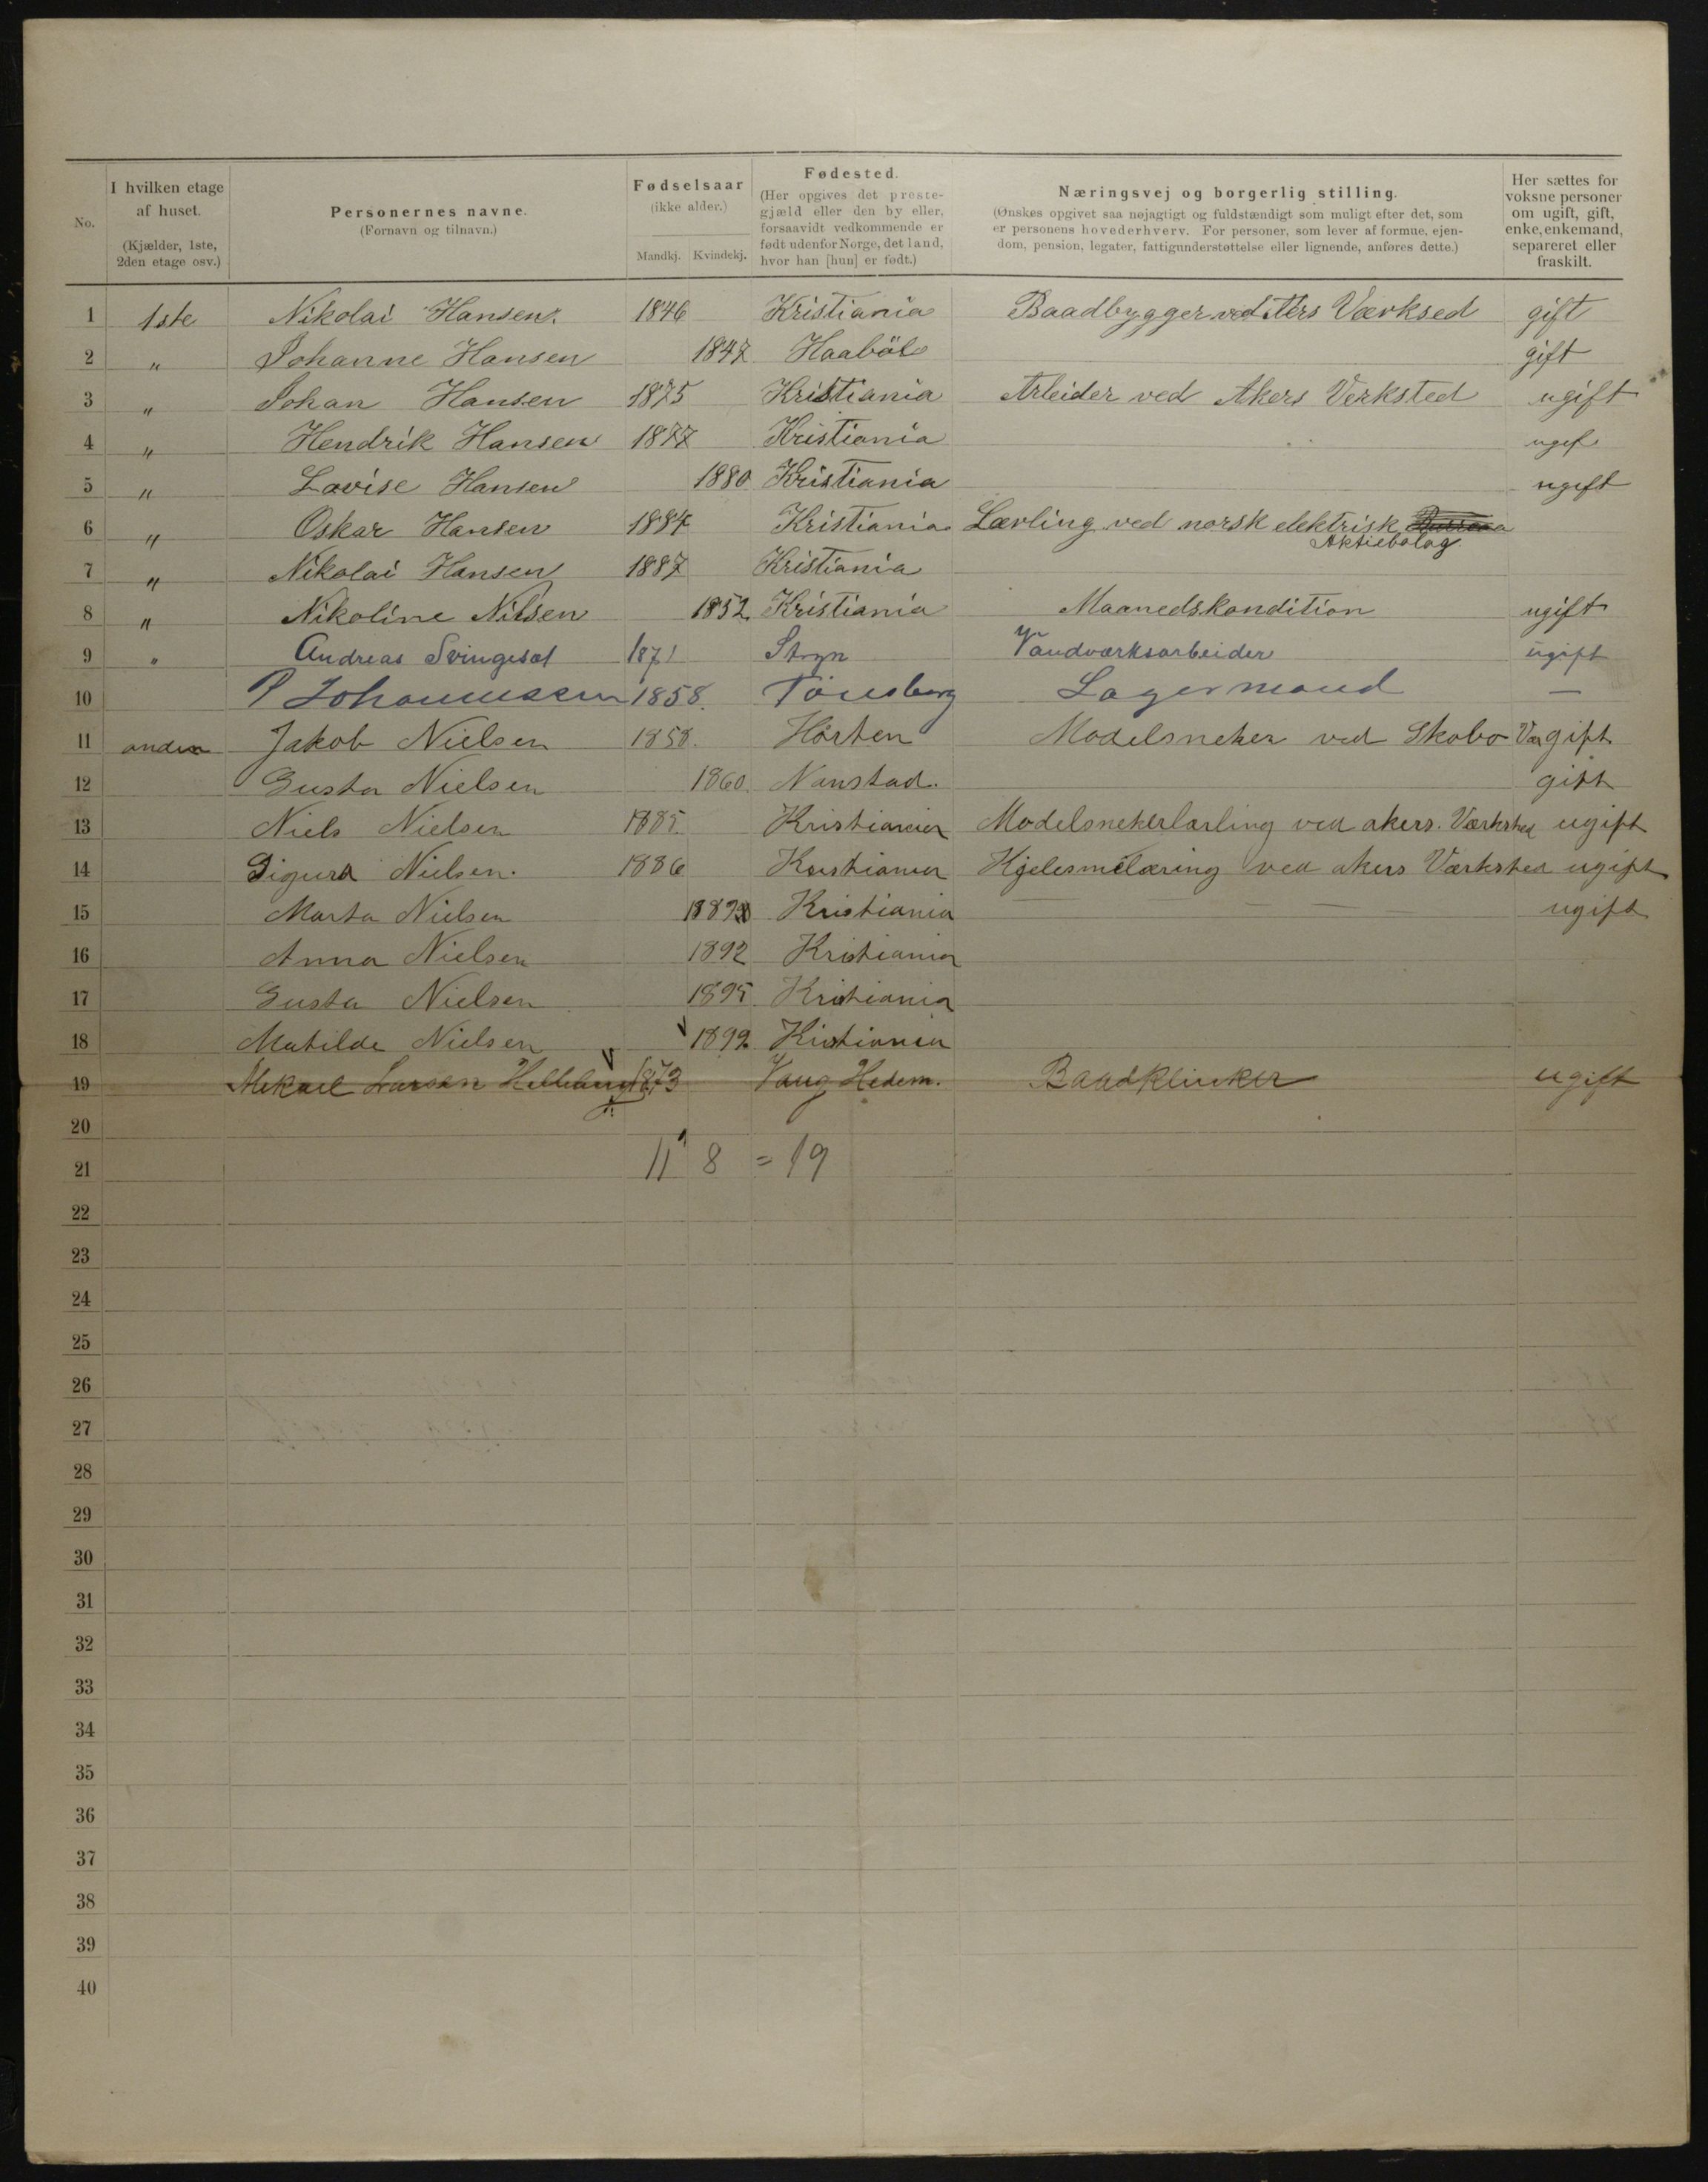 No. I hvilken etage af huset. (Kjælder, 1ste, 2den etage osv.) Personernes navne. (Fornavn og tilnavn.) Fødselsaar (ikke alder.) Mandkj. Kvindekj. Fødested. (Her opgives det prestegjæld eller den by eller, forsaavidt vedkommende er født udenfor Norge, det land, hvor han [hun] er født.) Næringsvej og borgerlig stilling. (Ønskes opgivet saa nøjagtigt og fuldstændigt som muligt efter det, som er personens hovederhverv. For personer, som lever af formue, ejendom, pension, legater, fattigunderstøttelse eller lignende, anføres dette.) Her sættes for voksne personer om ugift, gift, enke, enkemand, separeret eller fraskilt.
1 1ste Nikolai Hansen. 1846 Kristiania Baadbygger ved Værksed gift
2 " Johanne Hansen 1847 Haaböl gift
3 " Johan Hansen 1875 Kristiania Arbeider ved Akers Verksted ugift
4 " Hendrik Hansen 1877 Kristiania ugif
5 " Lovise Hansen 1880 Kristiania ugift
6 " Oskar Hansen 1884 Kristiania Lærling ved norsk elektrisk
Aktiebolag
7 " Nikolai Hansen 1887 Kristiania
8 " Nikoline Nilsen 1852 Kristiania Maanedskondition ugift
9 " Andreas Svingesæt 1871 Stryn Vandværksarbeider ugift
10 P Johannessen 1858. Tønsberg Lagermand —
11 anden Jakob Nielsen 1858. Horten Modelsneker ved Skabo gift
12 Gusta Nielsen 1860. Nanstad. gift
13 Niels Nielsen 1885 Kristiania Modelsnekerlærling ved akers. Værksted ugift
14 Sigurd Nielsen. 1886 Kristiania Kjelesmelæring ved akers Værksted ugift
15 Marta Nielsen Kristiania — — — ugift
16 Anna Nielsen 1892 Kristiania
17 Gusta Nielsen 1895 Kristiania
18 Matilde Nielsen 1899 Kristiania
19 Mekael Larsen 1873 Vang Hedem. Baadklinker ugift
20
21 11 8 = 19
22
23
24
25
26
27
28
29
30
31
32
33
34
35
36
37
38
39
40